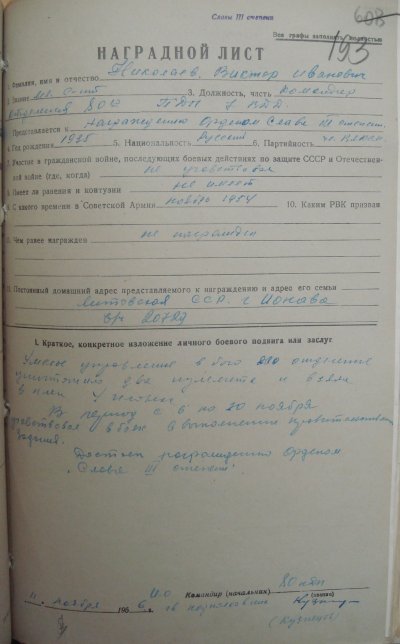 Славы III степени
608
Все графы заполнять полностью
193
НАГРАДНОЙ ЛИСТ
1. Фамилия, имя и отчество Николаев, Виктор Иванович
2. Звание мл. с-нт 3. Должность, часть Командир
отделения 80 ПДП 7 ВДД.
Представляется к награждению Орденом Слава III степени.
4. Год рождения 1935 5. Национальность Русский 6. Партийность чл. ВЛКСМ
7. Участие в гражданской войне, последующих боевых действиях по защите СССР и Отечествен-
ной войне (где, когда) не участвовал
8. Имеет ли ранения и контузии не имеет
9. С какого времени в Советской Армии ноябрь 1954 10. Каким РВК призван
11. Чем ранее награжден не награжден
12. Постоянный домашний адрес представляемого к награждению и адрес его семьи
Литовская ССР г Ионава
в/ч 20729
I. Краткое, конкретное изложение личного боевого подвига или заслуг
Умело управляя в бою отделение
уничтожило два пулемета и взяли
в плен 4 человек.
В период с 6 по 10 ноября
участвовал в боях в выполнении правительственного
задания.
Достоин награждения Орденом
„Слава III степени".
Командир (начальник) 80 пдп
(звание)
11 ноября 1956 г. гв подполковник
(Кузнецов)